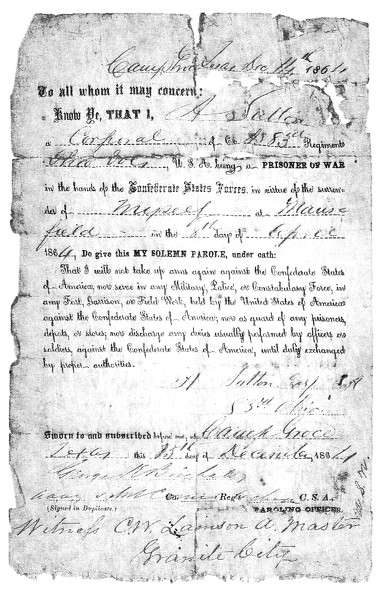 Camp Groce Texas Dec 14th 1864
To all whom it may concern:
Know Ye, THAT I, A Fulton
a Corporal of Co. 83rd Regiment
Ohio Vols, U.S.A. being a PRISONER OF WAR
in the hands of the Confederate States Forces, in virtue of the surren-
der of myself at Mans-
field on the 8th day of April
1864, Do give this MY SOLEMN PAROLE, under oath:
That I will not take up arms again against the Confederate States
of America; nor serve in any Military, Police, or Constabulary Force, in
any Fort, Garrison, or Field Work, held by the United States of America
against the Confederate States of America; nor as guard of any prisoners,
depots, or stores; nor discharge any duties usually performed by officers or
soldiers, against the Confederate States of America, until duly exchanged
by proper authorities.
A Fulton Corp
83rd Ohio
Sworn to and subscribed before me, at Camp Groce
Texas this 15th day of December, 1864
George
Co. Reg't C.S.A.
(Signed in Duplicate.) PAROLING OFFICER.
Witness C.W. Lamson A. Master
Granite City